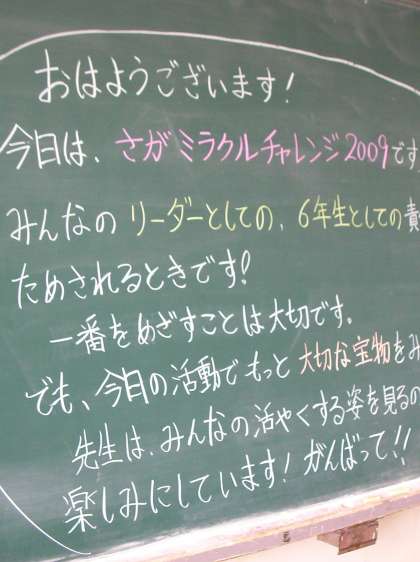 おはようございます!
今日は、さがミラクルチャレンジ2009です
みんなのリーダーとしての、6年生としての責
ためされるときです!
一番をめざすことは大切です。
でも、今日の活動でもっと大切な宝物をみ
先生は、みんなの活やくする姿を見るの
楽しみにしています!がんばって!!